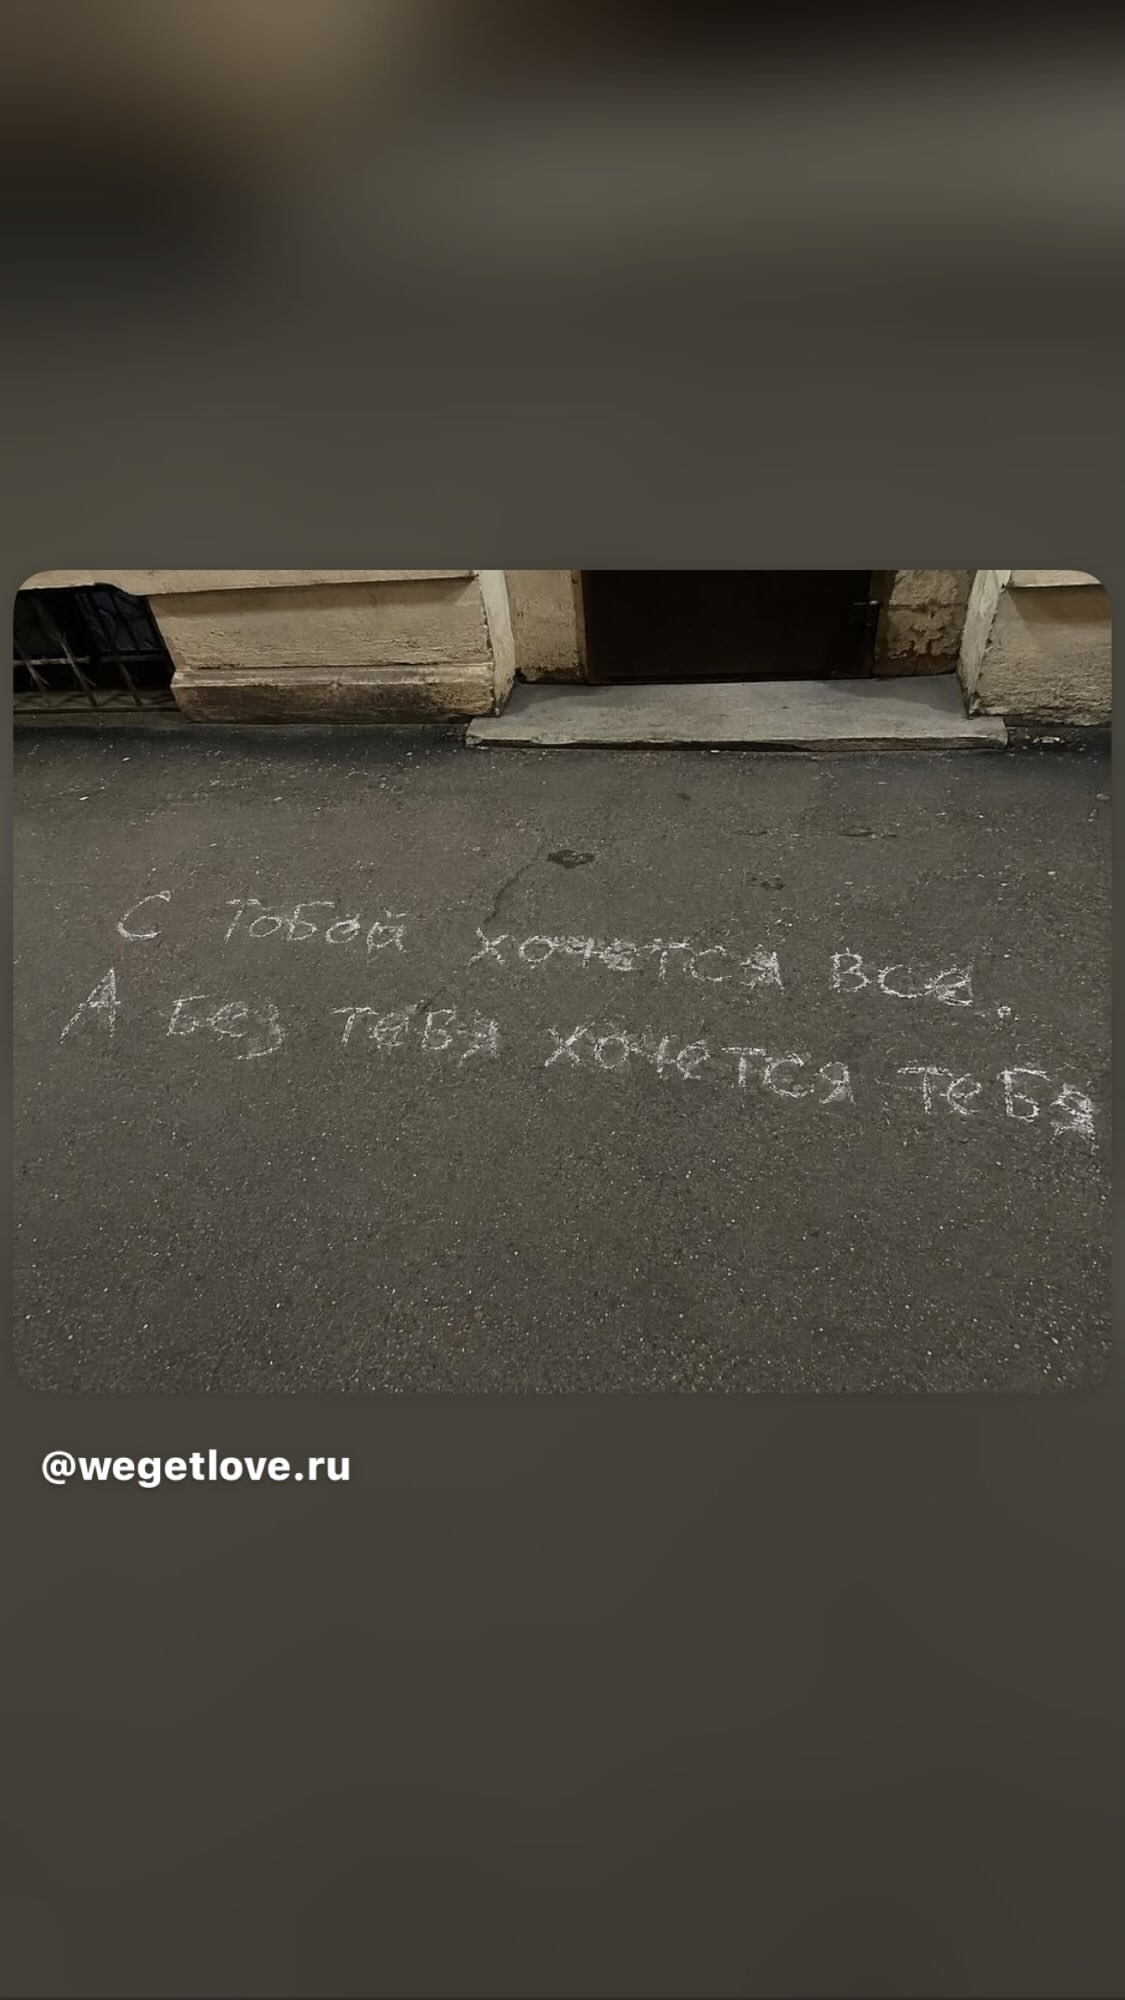 С тобой хочется все.
А без тебя хочется тебя
@wegetlove.ru